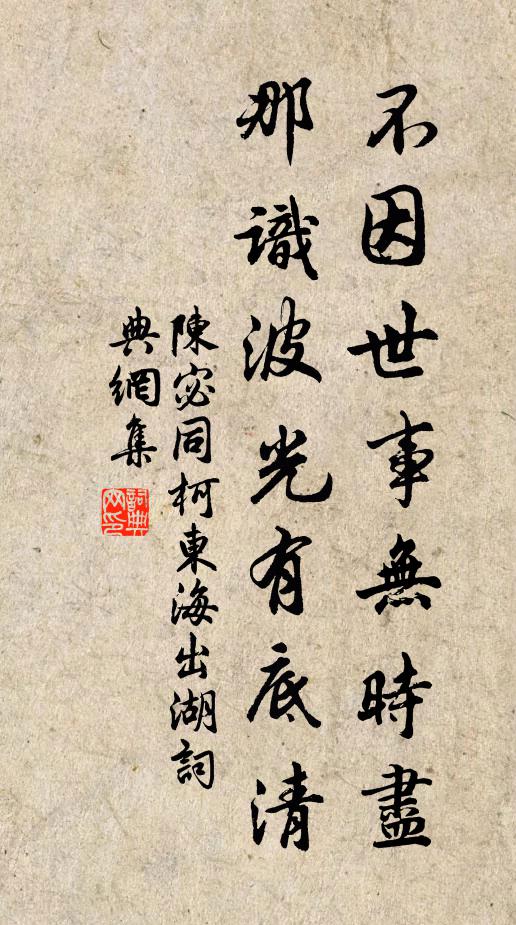 不因世事無時盡
那識波光有底清
陳宓同柯東海出湖詞
典網集
詞典
网印